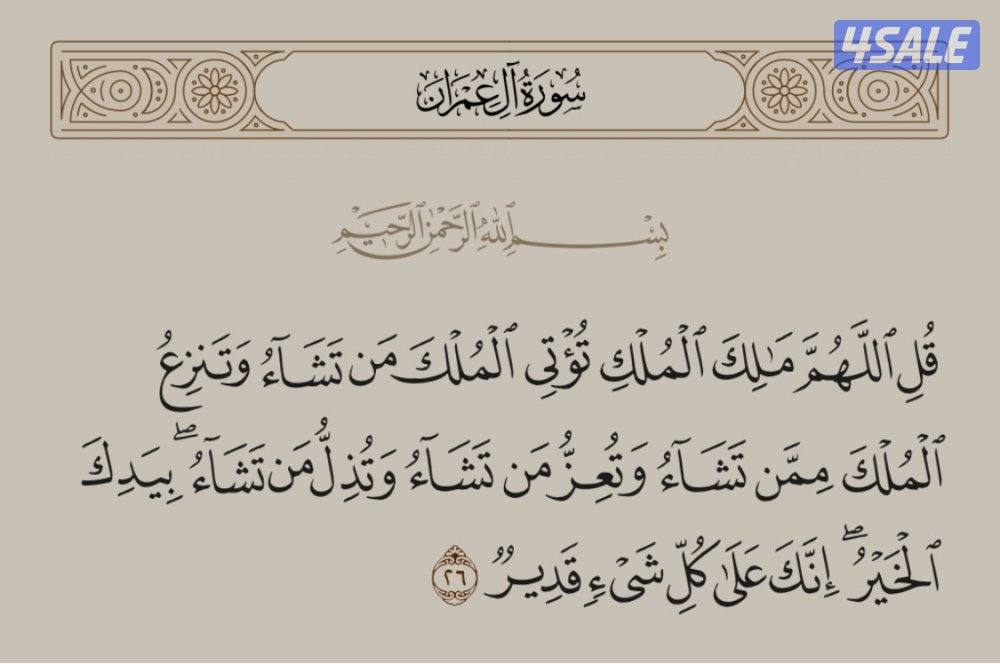 4SALE
سُورَةُ آلِ عِمْرَان
بِسْمِ ٱللَّهِ ٱلرَّحْمَٰنِ ٱلرَّحِيمِ
قُلِ ٱللَّهُمَّ مَٰلِكَ ٱلْمُلْكِ تُؤْتِى ٱلْمُلْكَ مَن تَشَآءُ وَتَنزِعُ
ٱلْمُلْكَ مِمَّن تَشَآءُ وَتُعِزُّ مَن تَشَآءُ وَتُذِلُّ مَن تَشَآءُ ۖ بِيَدِكَ
ٱلْخَيْرُ ۖ إِنَّكَ عَلَىٰ كُلِّ شَىْءٍ قَدِيرٌ ٢٦